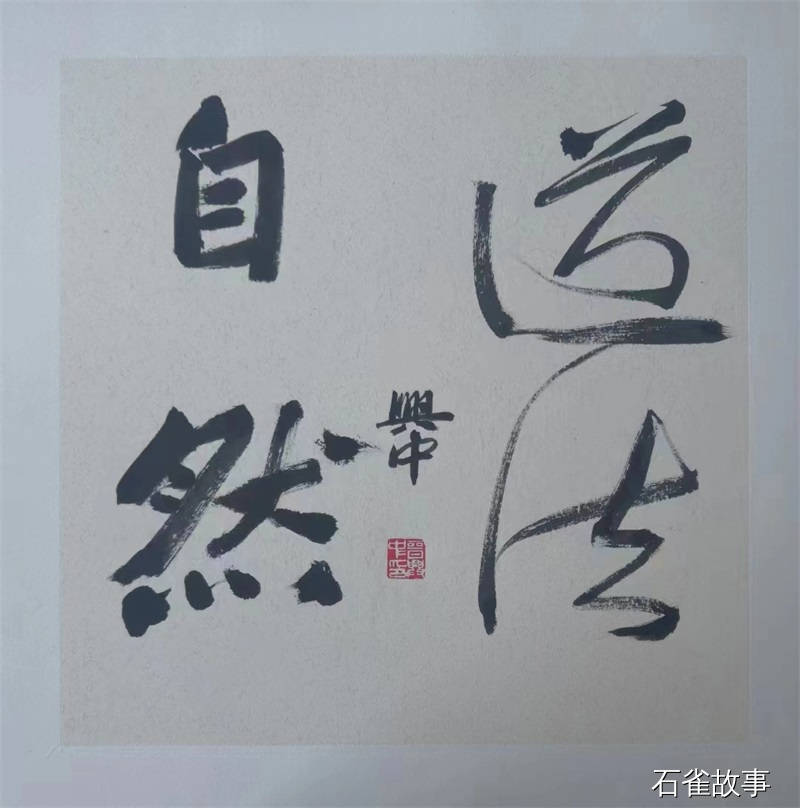 道法
自然
興中
石雀故事